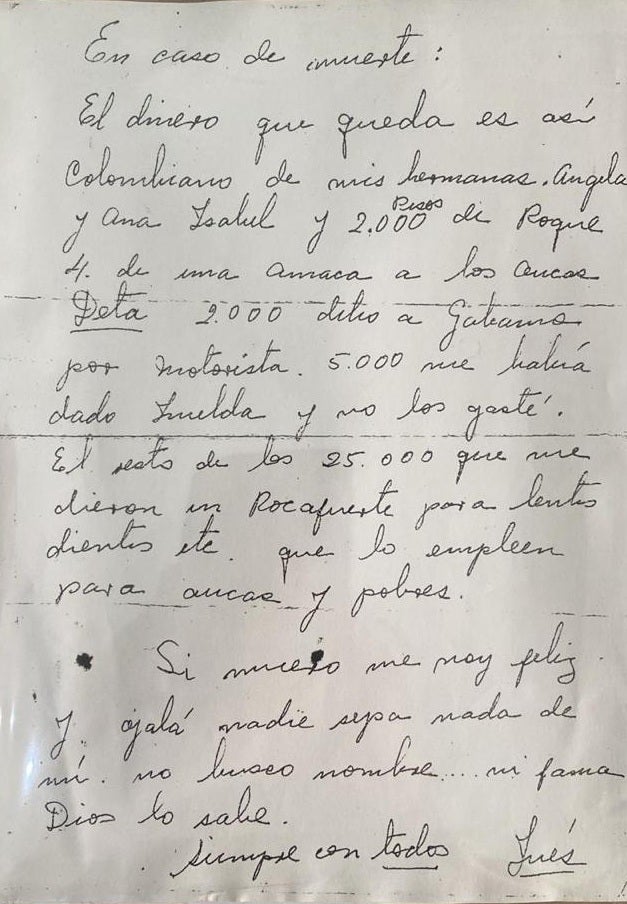 En caso de muerte:
El dinero que queda es así
Colombiano de mis hermanas. Angela
y Ana Isabel y 2.000 Pesos de Roque
4. de una amaca a los aucas
Deta 2.000 debo a
por motorista. 5.000 me había
dado Imelda y no los gasté.
El resto de los 25.000 que me
dieron en Rocafuerte para lentes
dientes etc. que lo empleen
para aucas y pobres.
Si muero me voy feliz.
y ojalá nadie sepa nada de
mí. no busco nombre.... ni fama
Dios lo sabe.
Siempre con todos Inés